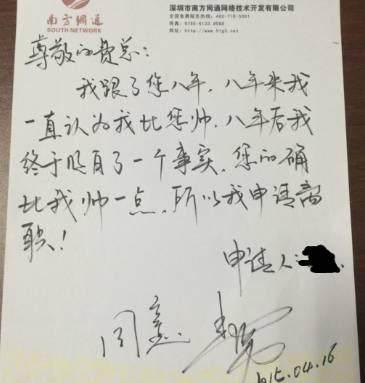 南方网通
SOUTH NETWORK
深圳市南方网通网络技术开发有限公司
尊敬的费总:
我跟了您八年,八年来我
一直认为我比您帅,八年后我
终于明白了一个事实,您的确
比我帅一点,所以我申请离
职!
申请人:
同意.
2015.04.16